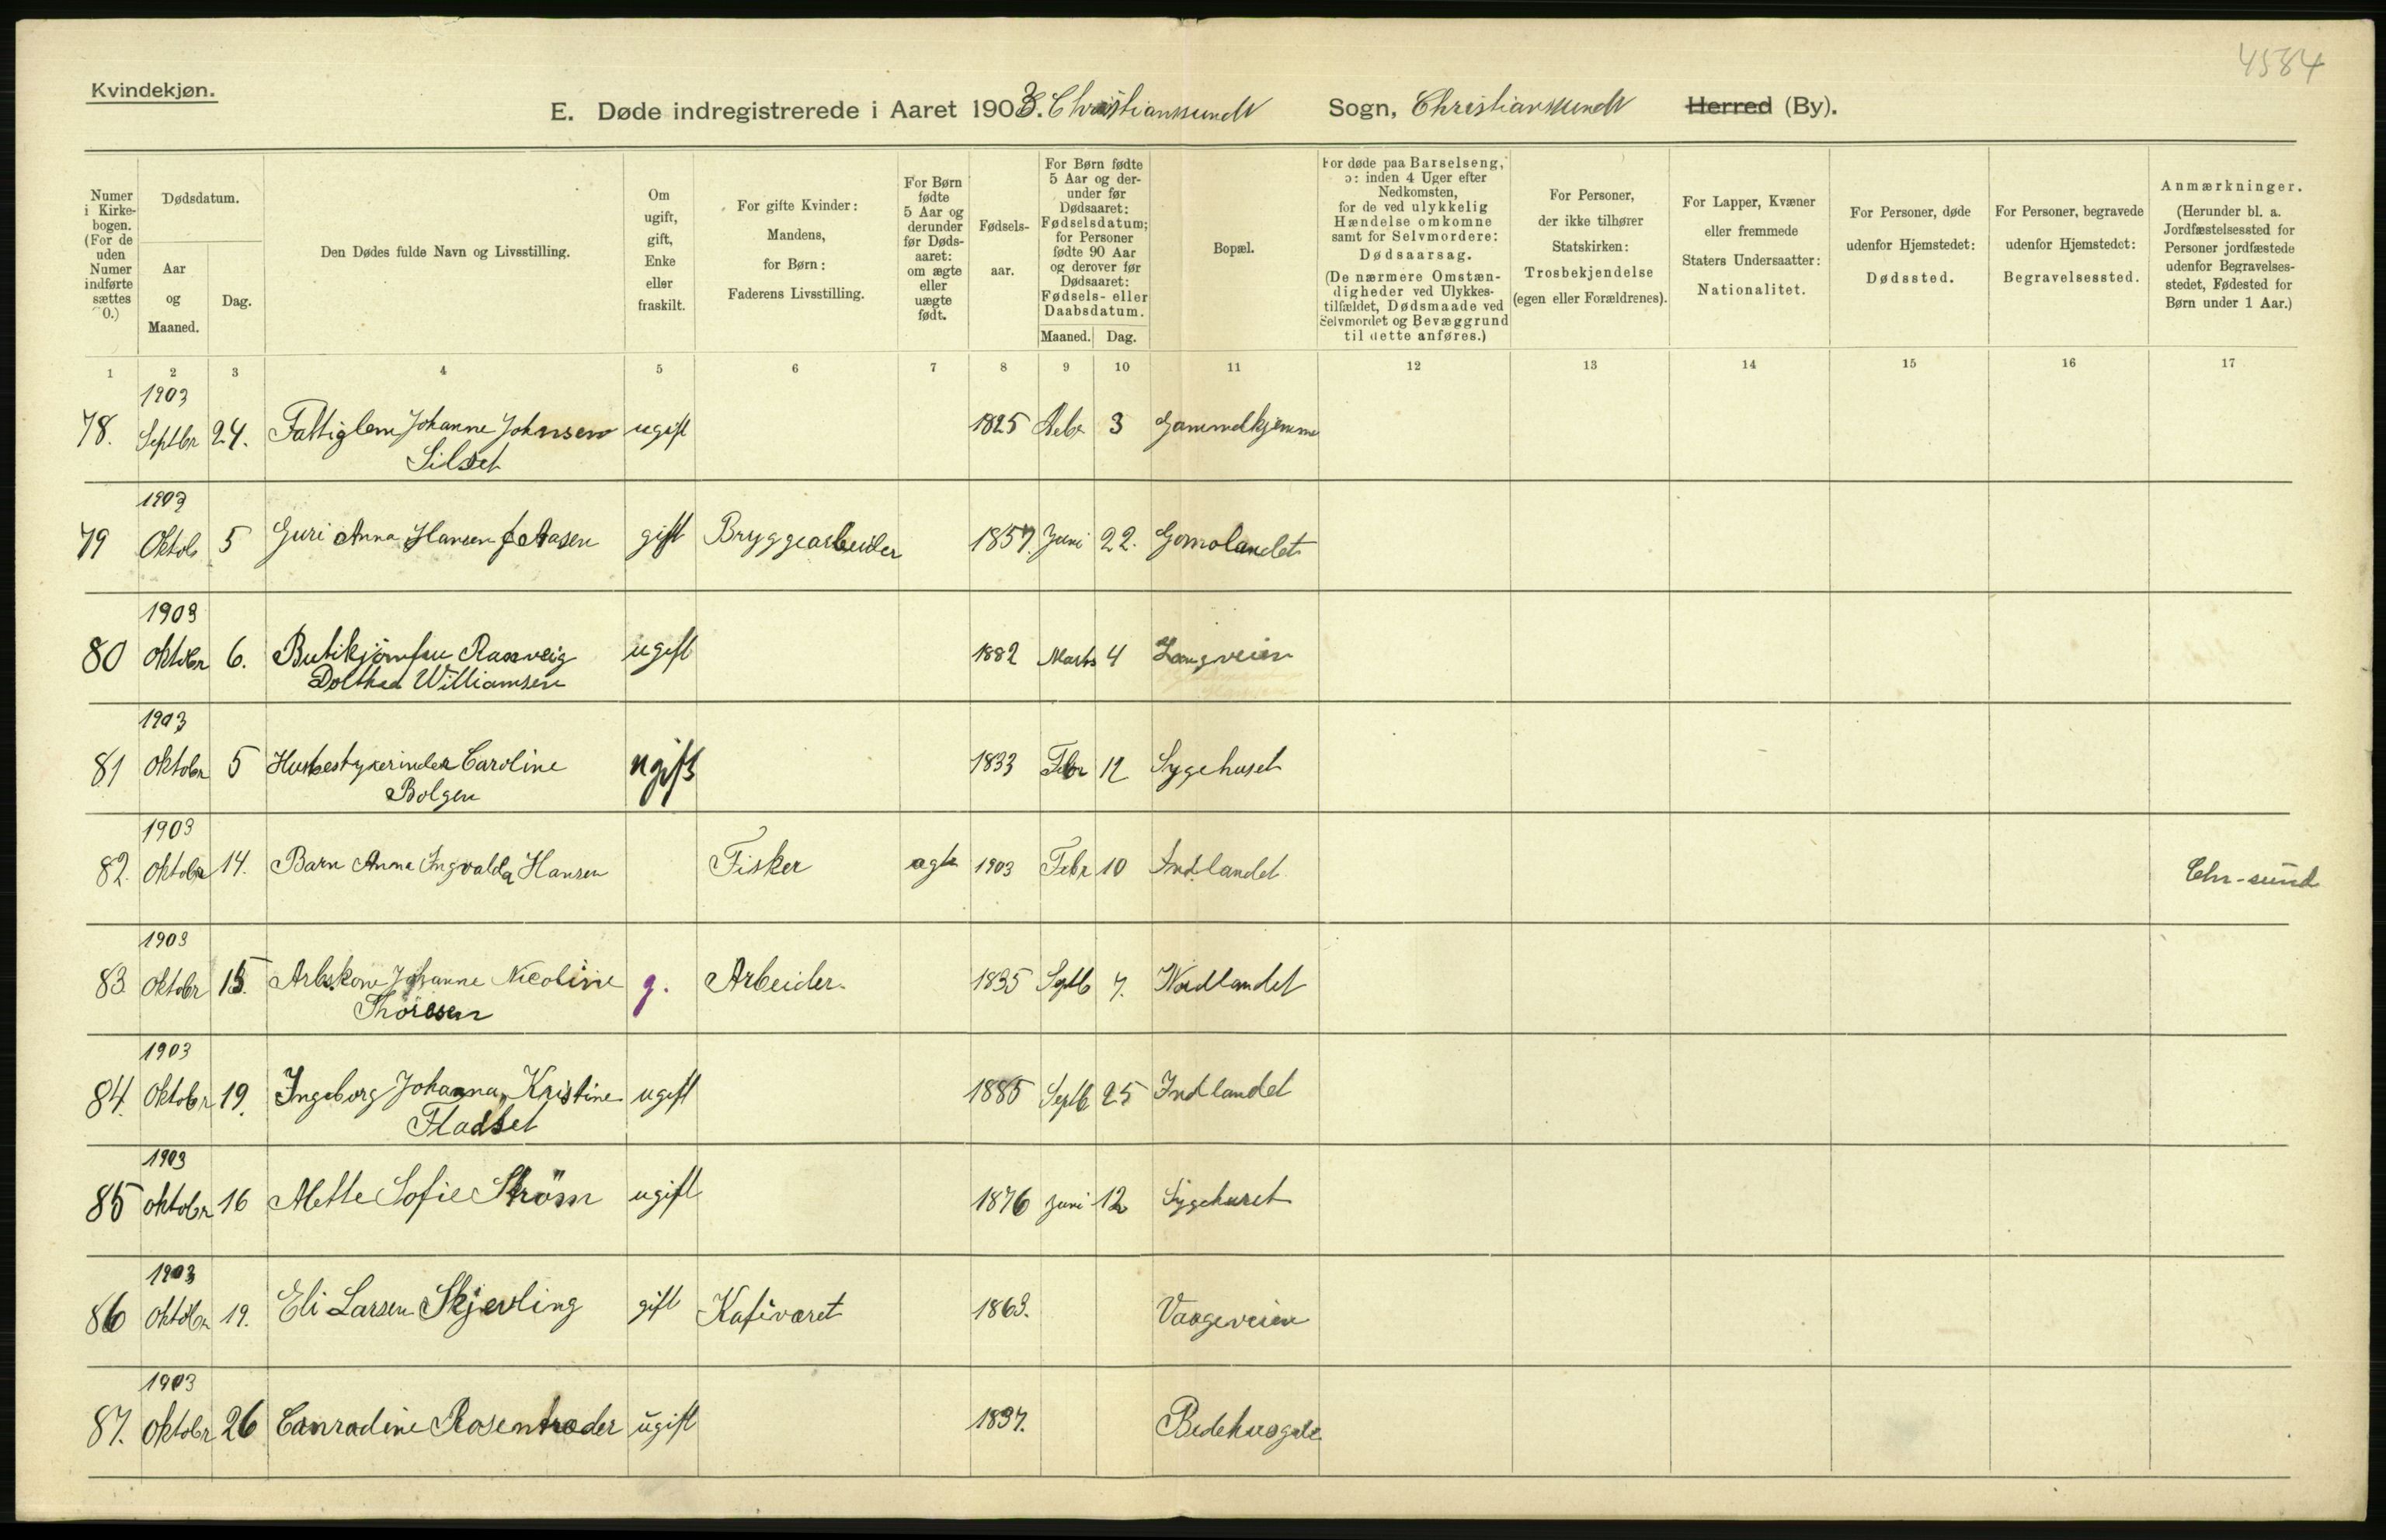 4584
Kvindekjøn.
E. Døde indregistrerede i Aaret 1903. Christianssund Sogn, Christianssund Herred (By).
Numer i Kirkebogen. (For de uden Numer indførte sættes 0.)
Dødsdatum.
Aar og Maaned.
Dag.
Den Dødes fulde Navn og Livsstilling.
Om ugift, gift, Enke eller fraskilt.
For gifte Kvinder: Mandens, for Børn: Faderens Livsstilling.
For Børn fødte 5 Aar og derunder før Dødsaaret: om ægte eller uægte født.
Fødselsaar.
For Børn fødte 5 Aar og derunder før Dødsaaret: Fødselsdatum; for Personer fødte 90 Aar og derover før Dødsaaret: Fødsels- eller Daabsdatum.
Maaned. Dag.
Bopæl.
For døde paa Barselseng, ɔ: inden 4 Uger efter Nedkomsten, for de ved ulykkelig Hændelse omkomne samt for Selvmordere: Dødsaarsag. (De nærmere Omstændigheder ved Ulykkestilfældet, Dødsmaade ved Selvmordet og Bevæggrund til dette anføres.)
For Personer, der ikke tilhører Statskirken: Trosbekjendelse (egen eller Forældrenes).
For Lapper, Kvæner eller fremmede Staters Undersaatter: Nationalitet.
For Personer, døde udenfor Hjemstedet: Dødssted.
For Personer, begravede udenfor Hjemstedet: Begravelsessted.
Anmærkninger. (Herunder bl. a. Jordfæstelsessted for Personer jordfæstede udenfor Begravelsesstedet, Fødested for Børn under 1 Aar.)
1 2 3 4 5 6 7 8 9 10 11 12 13 14 15 16 17
1903
78. Septbr 24. Fattiglem Johanne Johnsen ugift 1825 3
Silset
1903
79 Oktob 5 Guri Anna Hansen f Aasen gift Bryggearbeider 1857. Juni 22. Gomolandet
1903
80 Oktobr 6. Butikjomfru Ragnveig ugift 1882 Marts 4 Langveien
Williamsen
1903
81 Oktobr 5 Husbestyrerinde Caroline ugift 1833 Febr 12 Sygehuset
Bolgen
1903
82. Oktobr 14. Barn Anna Ingvalda Hansen Fisker ægte 1903 Febr 10 Indlandet Chr-sund
1903
83 Oktobr 15. Arbskone Johanne Nicoline g. Arbeider. 1835 Septb 7. Nordlandet
Thoresen
1903
84. Oktobr 19. Ingeborg Johanna Kristine ugift 1885 Septb 25 Indlandet
Fladset
1903
85 Oktobr 16 Mette Sofie Ström ugift 1876 Juni 12 Sygehuset
1903
86 Oktobr 19. Eli Larsen Skjevling gift Kafévært 1863. Vaageveien
1903
87. Oktobr 26 Conradine Rosentræder ugift 1837. Bedehusgate